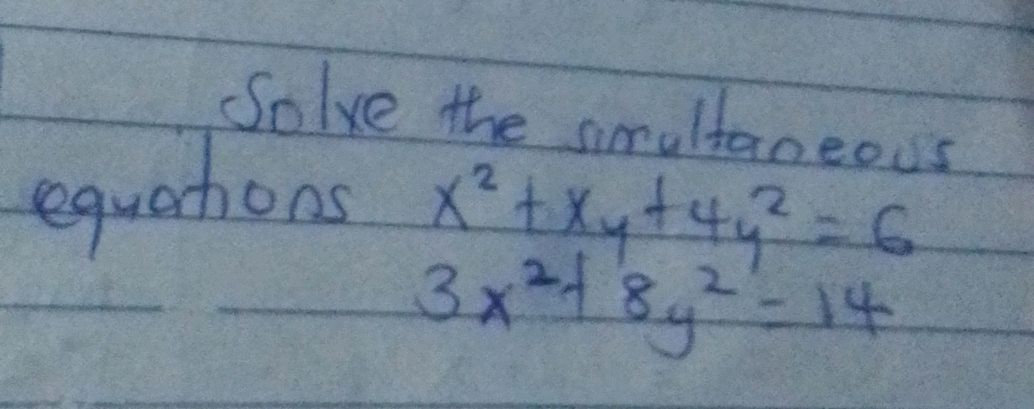 Solve the simultaneous
equations x² + xy + 4y² = 6
3x² + 8y² = 14